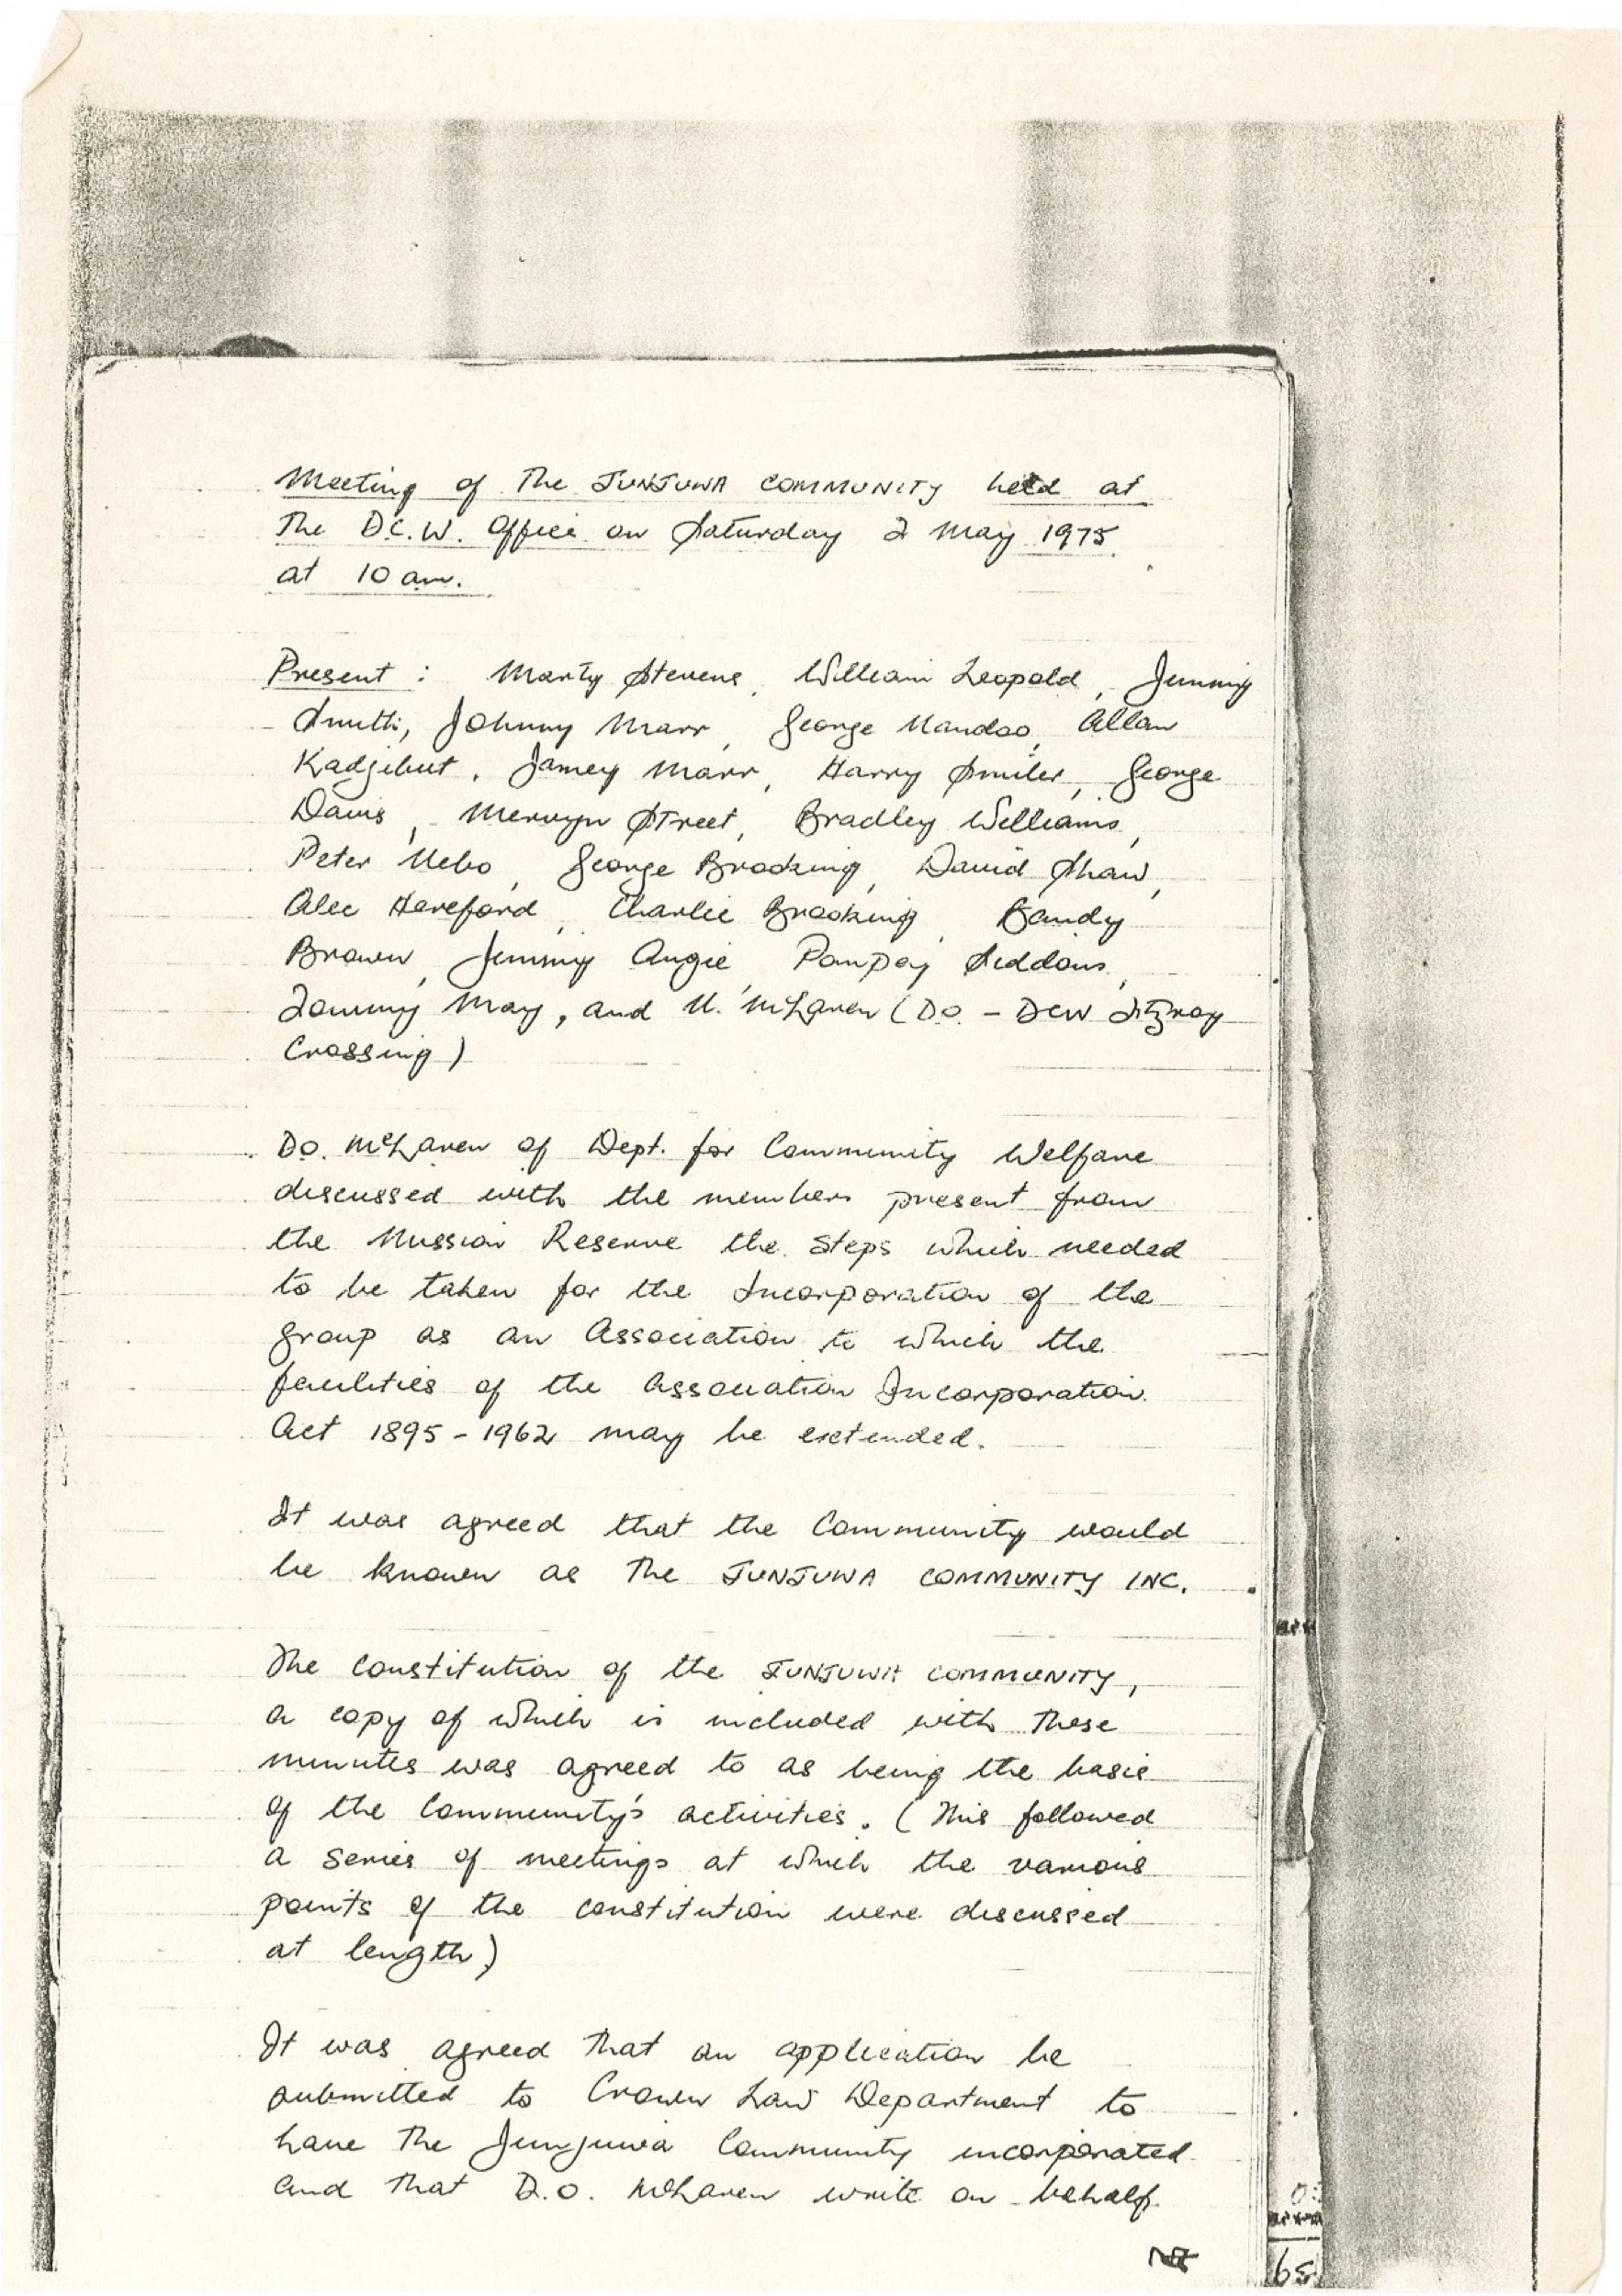 Meeting of The JUNJUWA COMMUNITY held at
The D.C.W. Office on Saturday 2 May 1975
at 10 am.
Present : Marty Stevens, William Leopold, Jimmy
Smith, Johnny Marr, George Nandoo, Allan
Kadjibut, Jamey Marr, Harry Smiler, George
Davis, Mervyn Street, Bradley Williams,
Peter Nebo, George Brooking, David Shaw,
Alec Hereford, Charlie Brooking, Bandy
Brown, Jimmy Angie, Pompey Siddons,
Tommy May, and N. McLaren (D.O. - DCW Fitzroy
Crossing)
D.O. McLaren of Dept. for Community Welfare
discussed with the members present from
the Mission Reserve the steps which needed
to be taken for the Incorporation of the
group as an Association to which the
facilities of the Association Incorporation
Act 1895-1962 may be extended.
It was agreed that the Community would
be known as The JUNJUWA COMMUNITY INC.
The Constitution of the JUNJUWA COMMUNITY,
a copy of which is included with These
minutes was agreed to as being the basis
of the Community's activities. (This followed
a series of meetings at which the various
points of the constitution were discussed
at length)
It was agreed That an application be
submitted to Crown Law Department to
have The Junjuwa Community incorporated
and That D.O. McLaren write on behalf